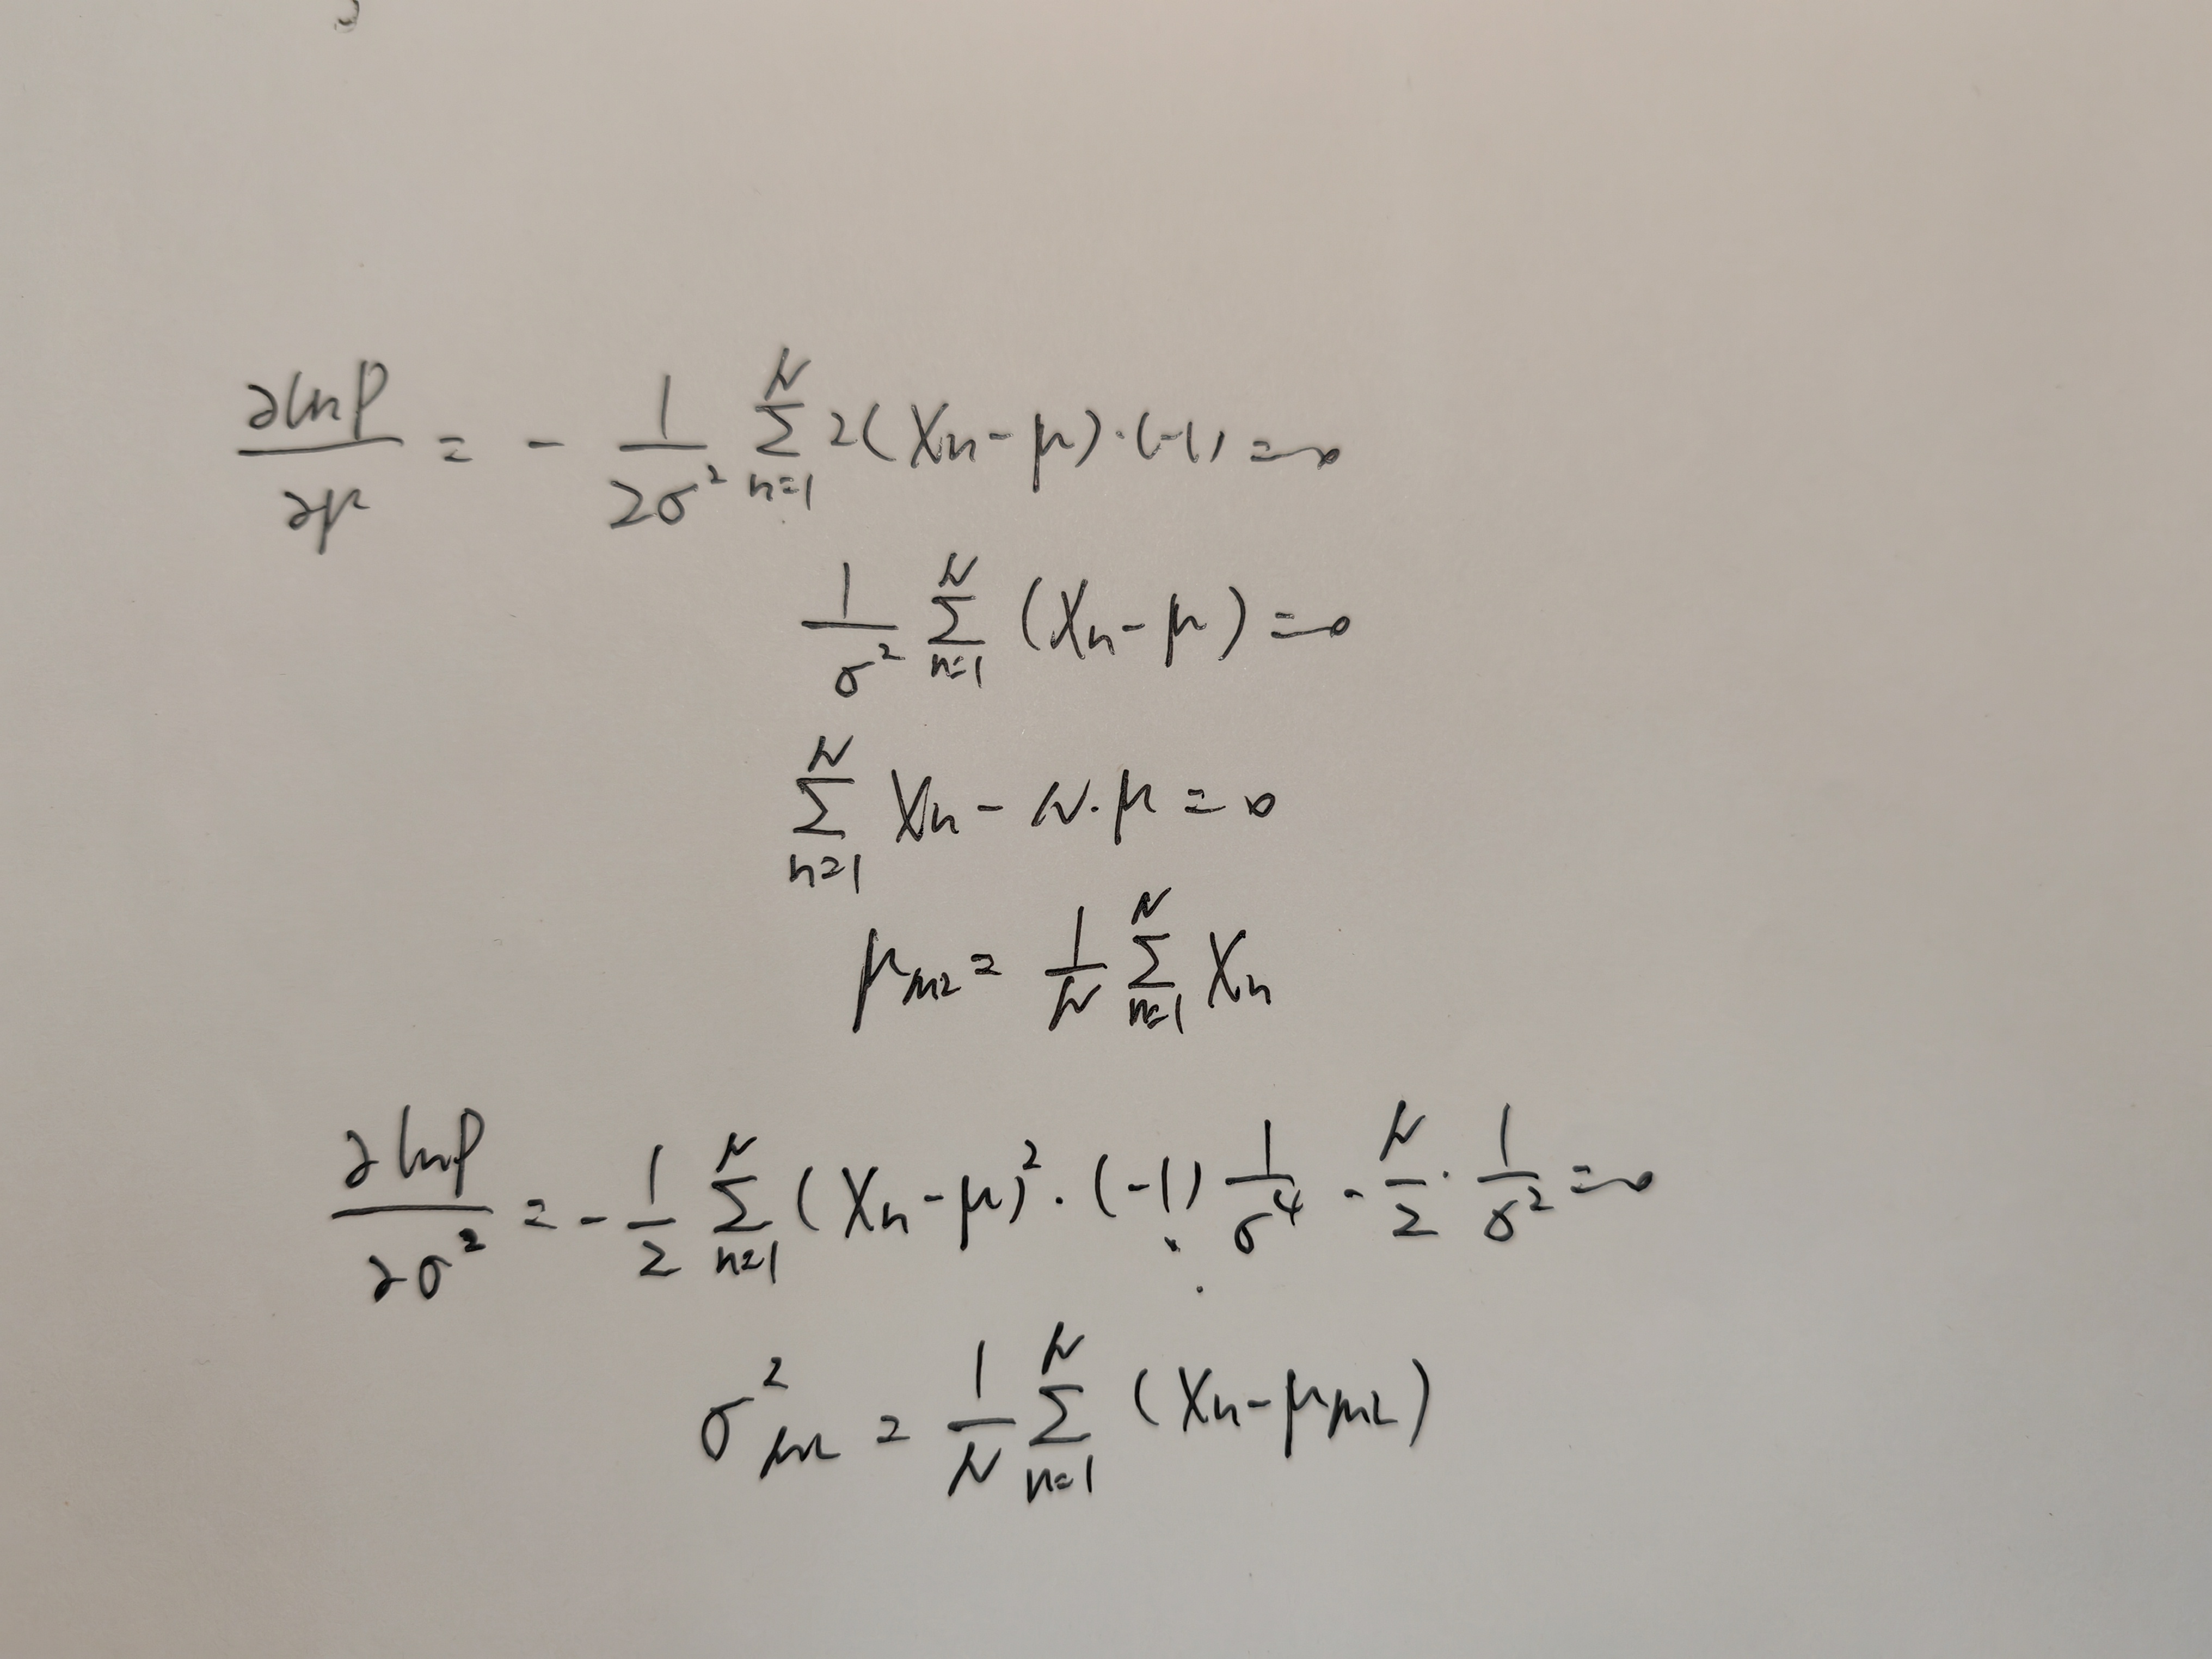 ∂lnP/∂μ = - 1/(2σ²) Σ_{n=1}^{N} 2(Xn - μ)·(-1) = 0
1/σ² Σ_{n=1}^{N} (Xn - μ) = 0
Σ_{n=1}^{N} Xn - N·μ = 0
μ_ML = 1/N Σ_{n=1}^{N} Xn
∂lnP/∂σ² = - 1/2 Σ_{n=1}^{N} (Xn - μ)²·(-1) 1/σ⁴ - N/2 · 1/σ² = 0
σ²_ML = 1/N Σ_{n=1}^{N} (Xn - μ_ML)